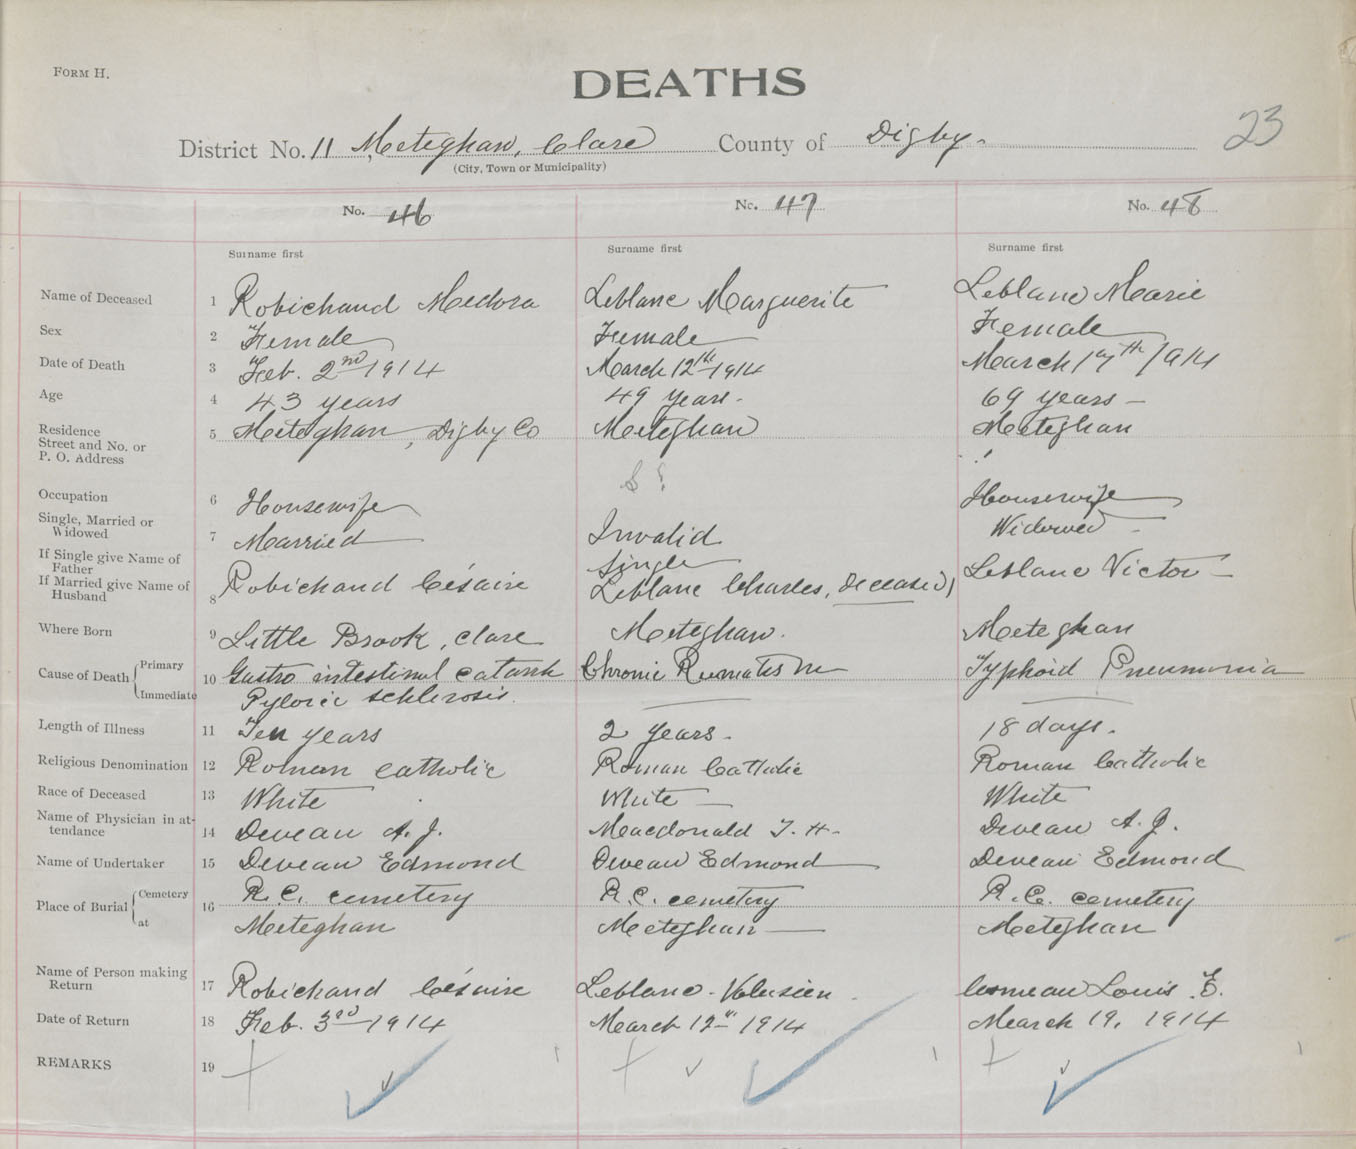 FORM H.
DEATHS
23
District No. 11 Meteghan, Clare County of Digby.
(City, Town or Municipality)
No. 46 No. 47 No. 48
Surname first Surname first Surname first
Name of Deceased 1 Robichaud Medora Leblanc Marguerite Leblanc Marie
Sex 2 Female Female Female
Date of Death 3 Feb. 2nd 1914 March 12th 1914 March 17th 1914
Age 4 43 years 49 years. 69 years
Residence 5 Meteghan, Digby Co Meteghan Meteghan
Street and No. or
P. O. Address
Occupation 6 Housewife Invalid Housewife
Single, Married or
Widowed 7 Married Single Widowed
If Single give Name of
Father
If Married give Name of
Husband 8 Robichaud Césaire Leblanc Charles, deceased Leblanc Victor
Where Born 9 Little Brook, Clare Meteghan. Meteghan
Cause of Death Primary 10 Gastro intestinal catarrh Chronic Rumatism Typhoid Pneumonia
Immediate Pyloric schlerosis.
Length of Illness 11 Ten years 2 years. 18 days.
Religious Denomination 12 Roman catholic Roman Catholic Roman Catholic
Race of Deceased 13 White White White
Name of Physician in at-
tendance 14 Deveau A. J. Macdonald T. H. Deveau A. J.
Name of Undertaker 15 Deveau Edmond Deveau Edmond Deveau Edmond
Place of Burial Cemetery 16 R.C. cemetery R.C. cemetery R.C. cemetery
at Meteghan Meteghan Meteghan
Name of Person making
Return 17 Robichaud Césaire Leblanc Volusien Comeau Louis E.
Date of Return 18 Feb. 3rd 1914 March 12th 1914 March 19, 1914
REMARKS 19